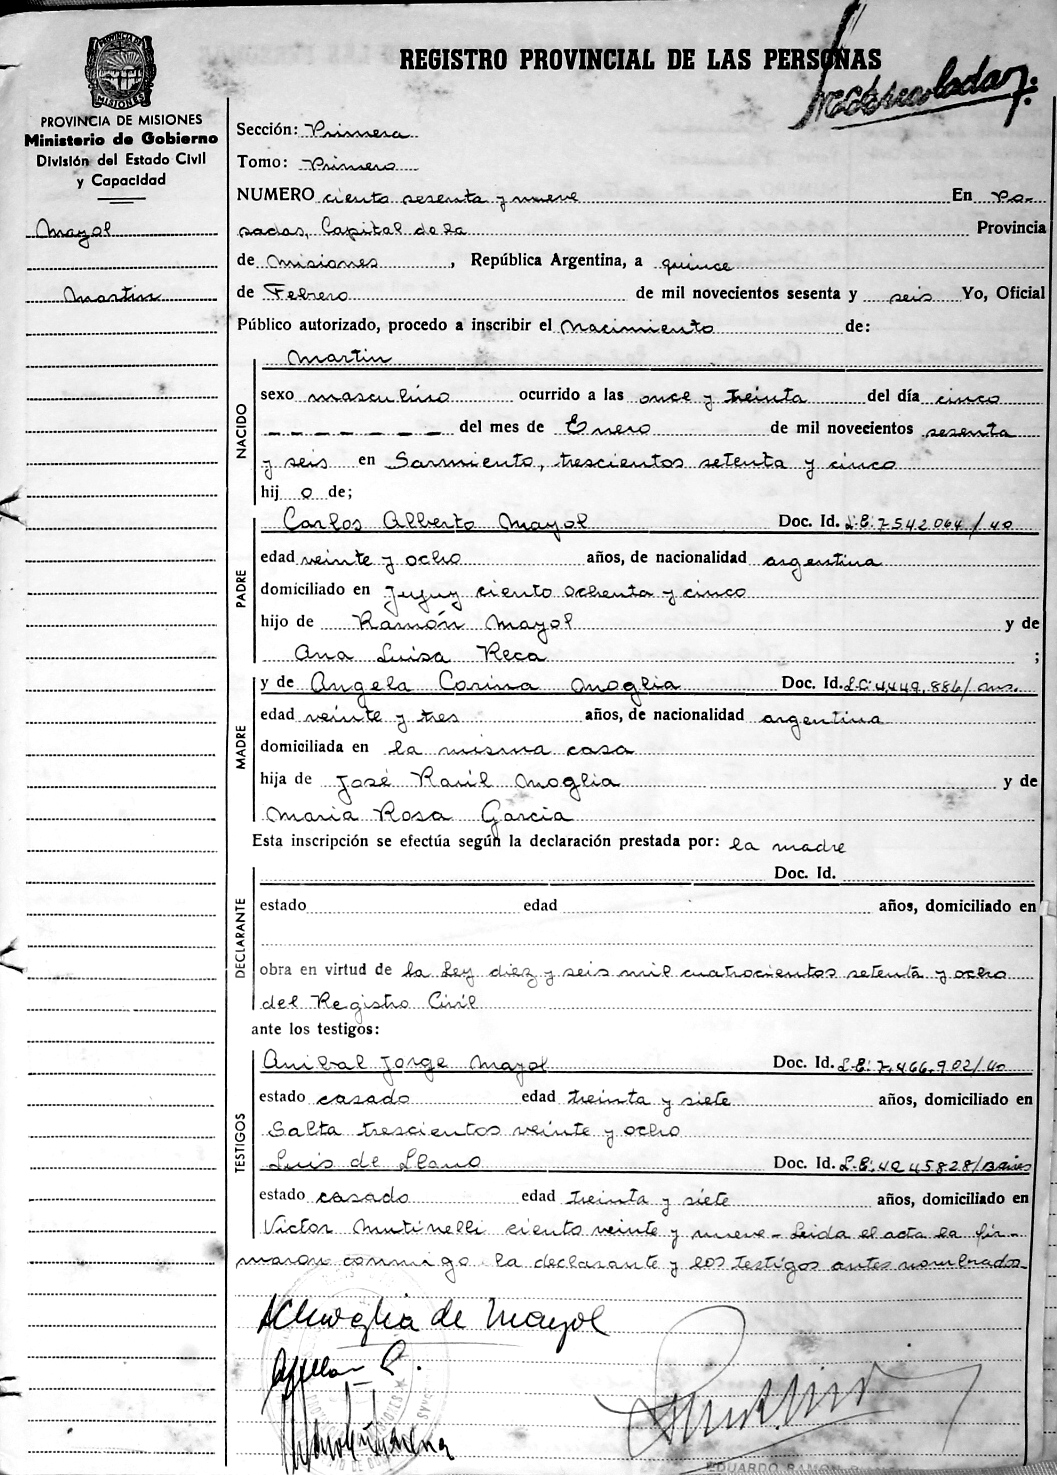 REGISTRO PROVINCIAL DE LAS PERSONAS
PROVINCIA DE MISIONES
PROVINCIA DE MISIONES
Ministerio de Gobierno
División del Estado Civil
y Capacidad
Mayol
Martin
Sección: Primera
Tomo: Primero
NUMERO ciento sesenta y nueve En Po-
sadas, Capital de la Provincia
de Misiones, República Argentina, a quince
de Febrero de mil novecientos sesenta y seis Yo, Oficial
Público autorizado, procedo a inscribir el Nacimiento de:
NACIDO
Martin
sexo masculino ocurrido a las once y treinta del día cinco
del mes de Enero de mil novecientos sesenta
y seis en Sarmiento, trescientos setenta y cinco
hij o de;
PADRE
Carlos Alberto Mayol Doc. Id. L.E: 7542064/40
edad veinte y ocho años, de nacionalidad argentina
domiciliado en Jujuy ciento ochenta y cinco
hijo de Ramón Mayol y de
Ana Luisa Reca ;
MADRE
y de Angela Corina Moglia Doc. Id. L.C: 4.449.886/
edad veinte y tres años, de nacionalidad argentina
domiciliada en la misma casa
hija de José Raúl Moglia y de
Maria Rosa Garcia
Esta inscripción se efectúa según la declaración prestada por: la madre
DECLARANTE
Doc. Id.
estado edad años, domiciliado en
obra en virtud de la Ley diez y seis mil cuatrocientos setenta y ocho
del Registro Civil
ante los testigos:
TESTIGOS
Anibal Jorge Mayol Doc. Id. L.E: 7.466.902/40
estado casado edad treinta y siete años, domiciliado en
Salta trescientos veinte y ocho
Luis de Llano Doc. Id. L.E: 4045828/
estado casado edad treinta y siete años, domiciliado en
Victor Mutinelli ciento veinte y nueve - Leida el acta la fir-
maron conmigo la declarante y los testigos antes nombrados
ACMoglia de Mayol
EDUARDO RAMON